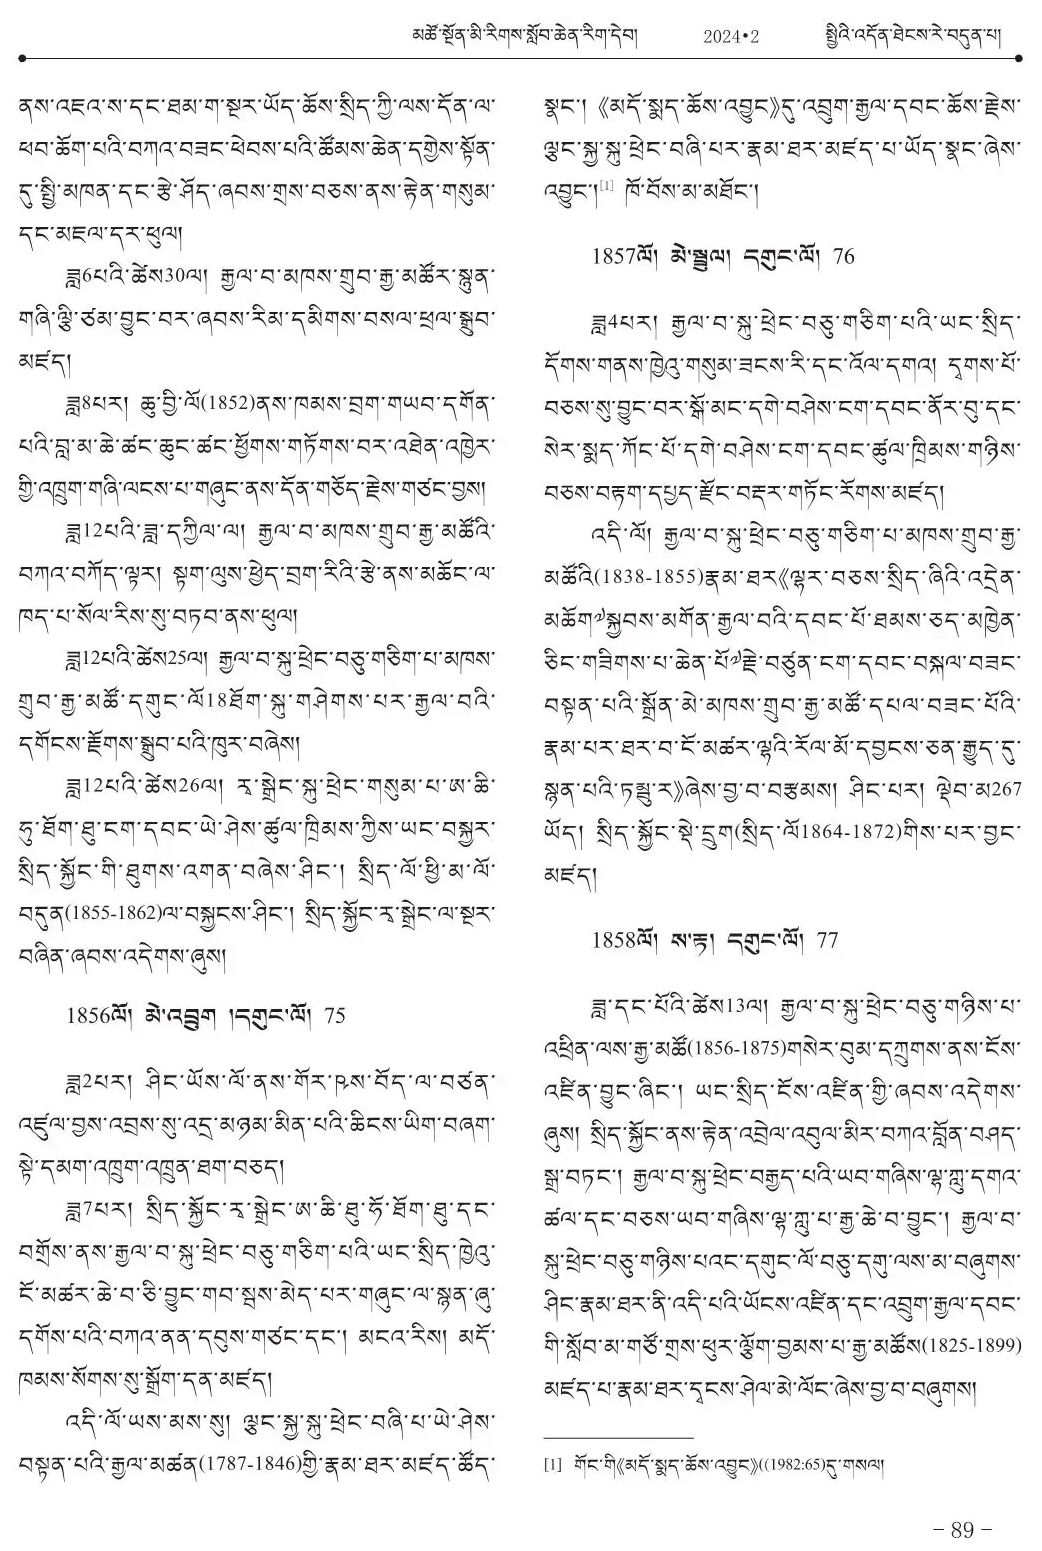 མཚོ་སྔོན་མི་རིགས་སློབ་ཆེན་རིག་དེབ། 2024•2 སྤྱིའི་འདོན་ཐེངས་རེ་བདུན་པ།
ནས་འཇའ་ས་དང་ཐམ་ག་སྔར་ཡོད་ཆོས་སྲིད་ཀྱི་ལས་དོན་ལ་
ཕབ་ཆོག་པའི་བཀའ་བཟང་ཕེབས་པའི་ཚོམས་ཆེན་དགྱེས་སྟོན་
དུ་སྤྱི་མཁན་དང་རྩེ་ཤོད་ཞབས་གྲས་བཅས་ནས་རྟེན་གསུམ་
དང་མཇལ་དར་ཕུལ།
ཟླ6པའི་ཚེས30ལ། རྒྱལ་བ་མཁས་གྲུབ་རྒྱ་མཚོར་སྙུན་
གཞི་ལྕི་ཙམ་བྱུང་བར་ཞབས་རིམ་དམིགས་བསལ་ཕྲལ་སྒྲུབ་
མཛད།
ཟླ8པར། ཆུ་བྱི་ལོ(1852)ནས་ཁམས་བྲག་གཡབ་དགོན་
པའི་བླ་མ་ཆེ་ཚང་ཆུང་ཚང་ཕྱོགས་གཏོགས་བར་འཐེན་འཁྱེར་
གྱི་འཁྲུག་གཞི་ལངས་པ་གཞུང་ནས་དོན་གཅོད་རྗེས་གཙང་བྱས།
ཟླ12པའི་ཟླ་དཀྱིལ་ལ། རྒྱལ་བ་མཁས་གྲུབ་རྒྱ་མཚོའི་
བཀའ་བཀོད་ལྟར། སྟག་ལུས་ཕྱེད་བྲག་རིའི་རྩེ་ནས་མཆོང་ལ་
ཁད་པ་སོལ་རིས་སུ་བཏབ་ནས་ཕུལ།
ཟླ12པའི་ཚེས25ལ། རྒྱལ་བ་སྐུ་ཕྲེང་བཅུ་གཅིག་པ་མཁས་
གྲུབ་རྒྱ་མཚོ་དགུང་ལོ18ཐོག་སྐུ་གཤེགས་པར་རྒྱལ་བའི་
དགོངས་རྫོགས་སྒྲུབ་པའི་ཁུར་བཞེས།
ཟླ12པའི་ཚེས26ལ། རྭ་སྒྲེང་སྐུ་ཕྲེང་གསུམ་པ་ཨ་ཆི་
ཧུ་ཐོག་ཐུ་ངག་དབང་ཡེ་ཤེས་ཚུལ་ཁྲིམས་ཀྱིས་ཡང་བསྐྱར་
སྲིད་སྐྱོང་གི་ཐུགས་འགན་བཞེས་ཤིང་། སྲིད་ལོ་ཕྱི་མ་ལོ་
བདུན(1855-1862)ལ་བསྐྱངས་ཤིང་། སྲིད་སྐྱོང་རྭ་སྒྲེང་ལ་སྔར་
བཞིན་ཞབས་འདེགས་ཞུས།
1856ལོ། མེ་འབྲུག །དགུང་ལོ། 75
ཟླ2པར། ཤིང་ཡོས་ལོ་ནས་གོར་ཥས་བོད་ལ་བཙན་
འཛུལ་བྱས་འབྲས་སུ་འདྲ་མཉམ་མིན་པའི་ཆིངས་ཡིག་བཞག་
སྟེ་དམག་འཁྲུག་འཁྲུན་ཐག་བཅད།
ཟླ7པར། སྲིད་སྐྱོང་རྭ་སྒྲེང་ཨ་ཆི་ཐུ་ཧོ་ཐོག་ཐུ་དང་
བགྲོས་ནས་རྒྱལ་བ་སྐུ་ཕྲེང་བཅུ་གཅིག་པའི་ཡང་སྲིད་ཁྱེའུ་
ངོ་མཚར་ཆེ་བ་ཅི་བྱུང་གབ་སྦས་མེད་པར་གཞུང་ལ་སྙན་ཞུ་
དགོས་པའི་བཀའ་ནན་དབུས་གཙང་དང་། མངའ་རིས། མདོ་
ཁམས་སོགས་སུ་སྒྲོག་དན་མཛད།
འདི་ལོ་ཡས་མས་སུ། ལྕང་སྐྱ་སྐུ་ཕྲེང་བཞི་པ་ཡེ་ཤེས་
བསྟན་པའི་རྒྱལ་མཚན(1787-1846)གྱི་རྣམ་ཐར་མཛད་ཚོད་
སྣང་། 《མདོ་སྨད་ཆོས་འབྱུང》དུ་འབྲུག་རྒྱལ་དབང་ཆོས་རྗེས་
ལྕང་སྐྱ་སྐུ་ཕྲེང་བཞི་པར་རྣམ་ཐར་མཛད་པ་ཡོད་སྣང་ཞེས་
འབྱུང་།[1] ཁོ་བོས་མ་མཐོང་།
1857ལོ། མེ་སྦྲུལ། དགུང་ལོ། 76
ཟླ4པར། རྒྱལ་བ་སྐུ་ཕྲེང་བཅུ་གཅིག་པའི་ཡང་སྲིད་
དོགས་གནས་ཁྱེའུ་གསུམ་ཟངས་རི་དང་འོལ་དགའ། དྭགས་པོ་
བཅས་སུ་བྱུང་བར་སྒོ་མང་དགེ་བཤེས་ངག་དབང་ནོར་བུ་དང་
སེར་སྨད་ཀོང་པོ་དགེ་བཤེས་ངག་དབང་ཚུལ་ཁྲིམས་གཉིས་
བཅས་བརྟག་དཔྱད་རྫོང་བརྡར་གཏོང་རོགས་མཛད།
འདི་ལོ། རྒྱལ་བ་སྐུ་ཕྲེང་བཅུ་གཅིག་པ་མཁས་གྲུབ་རྒྱ་
མཚོའི(1838-1855)རྣམ་ཐར《ལྷར་བཅས་སྲིད་ཞིའི་འདྲེན་
མཆོག༧སྐྱབས་མགོན་རྒྱལ་བའི་དབང་པོ་ཐམས་ཅད་མཁྱེན་
ཅིང་གཟིགས་པ་ཆེན་པོ༧རྗེ་བཙུན་ངག་དབང་བསྐལ་བཟང་
བསྟན་པའི་སྒྲོན་མེ་མཁས་གྲུབ་རྒྱ་མཚོ་དཔལ་བཟང་པོའི་
རྣམ་པར་ཐར་བ་ངོ་མཚར་ལྷའི་རོལ་མོ་དབྱངས་ཅན་རྒྱུད་དུ་
སྙན་པའི་ཏམྦུ་ར》ཞེས་བྱ་བ་བརྩམས། ཤིང་པར། ལྡེབ་མ267
ཡོད། སྲིད་སྐྱོང་སྡེ་དྲུག(སྲིད་ལོ1864-1872)གིས་པར་བྱང་
མཛད།
1858ལོ། ས་རྟ། དགུང་ལོ། 77
ཟླ་དང་པོའི་ཚེས13ལ། རྒྱལ་བ་སྐུ་ཕྲེང་བཅུ་གཉིས་པ་
འཕྲིན་ལས་རྒྱ་མཚོ(1856-1875)གསེར་བུམ་དཀྲུགས་ནས་ངོས་
འཛིན་བྱུང་ཞིང་། ཡང་སྲིད་ངོས་འཛིན་གྱི་ཞབས་འདེགས་
ཞུས། སྲིད་སྐྱོང་ནས་རྟེན་འབྲེལ་འབུལ་མིར་བཀའ་བློན་བཤད་
སྒྲ་བཏང་། རྒྱལ་བ་སྐུ་ཕྲེང་བརྒྱད་པའི་ཡབ་གཞིས་ལྷ་ཀླུ་དགའ་
ཚལ་དང་བཅས་ཡབ་གཞིས་ལྷ་ཀླུ་པ་རྒྱ་ཆེ་བ་བྱུང་། རྒྱལ་བ་
སྐུ་ཕྲེང་བཅུ་གཉིས་པའང་དགུང་ལོ་བཅུ་དགུ་ལས་མ་བཞུགས་
ཤིང་རྣམ་ཐར་ནི་འདི་པའི་ཡོངས་འཛིན་དང་འབྲུག་རྒྱལ་དབང་
གི་སློབ་མ་གཙོ་གྲས་ཕུར་ལྕོག་བྱམས་པ་རྒྱ་མཚོས(1825-1899)
མཛད་པ་རྣམ་ཐར་དྭངས་ཤེལ་མེ་ལོང་ཞེས་བྱ་བ་བཞུགས།
[1] གོང་གི《མདོ་སྨད་ཆོས་འབྱུང》((1982:65)དུ་གསལ།
- 89 -